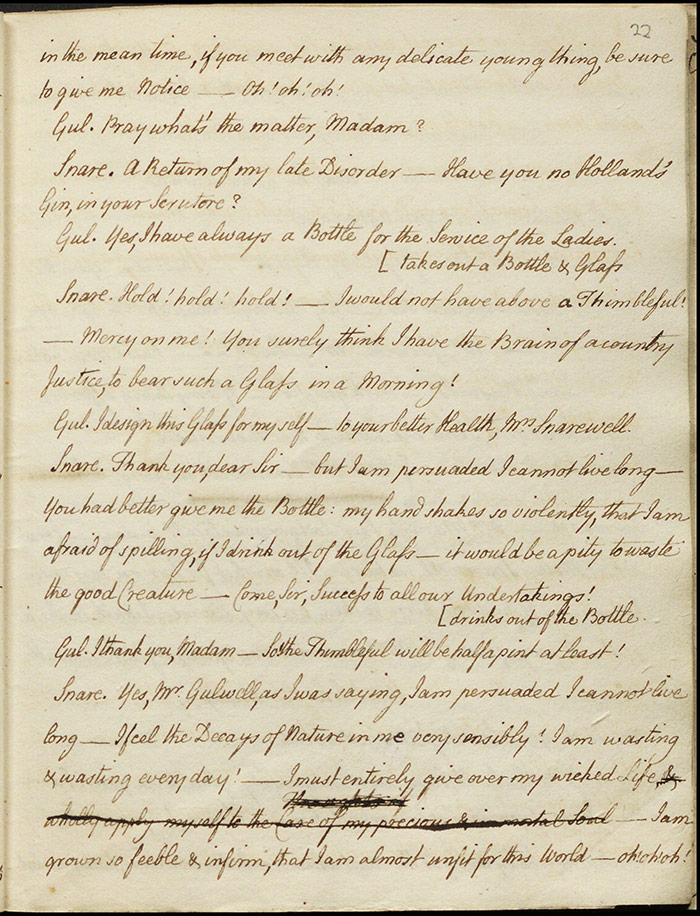 22
in the mean time, if you meet with any delicate young thing, be sure
to give me Notice — Oh! oh! oh!
Gul. Pray what's the matter, Madam?
Snare. A Return of my late Disorder — Have you no Holland's
Gin, in your Scrutore?
Gul. Yes, I have always a Bottle for the Service of the Ladies.
[takes out a Bottle & Glass
Snare. Hold! hold! hold! — I would not have above a Thimbleful!
— Mercy on me! You surely think I have the Brain of a country
Justice, to bear such a Glass in a Morning!
Gul. I design this Glass for myself — to your better Health, Mrs Snarewell.
Snare. Thank you, dear Sir — but I am persuaded I cannot live long —
You had better give me the Bottle: my hand shakes so violently, that I am
afraid of spilling, if I drink out of the Glass — it would be a pity to waste
the good Creature — Come, Sir, Success to all our Undertakings!
[drinks out of the Bottle.
Gul. I thank you, Madam — So the Thimbleful will be half a pint at least!
Snare. Yes, Mr. Gulwell, as I was saying, I am persuaded I cannot live
long — I feel the Decays of Nature in me very sensibly! I am wasting
& wasting every day! — I must entirely give over my wicked Life, &
Thoughts of
wholly apply myself to the Care of my precious & immortal Soul — I am
grown so feeble & infirm, that I am almost unfit for this World — oh! oh! oh!